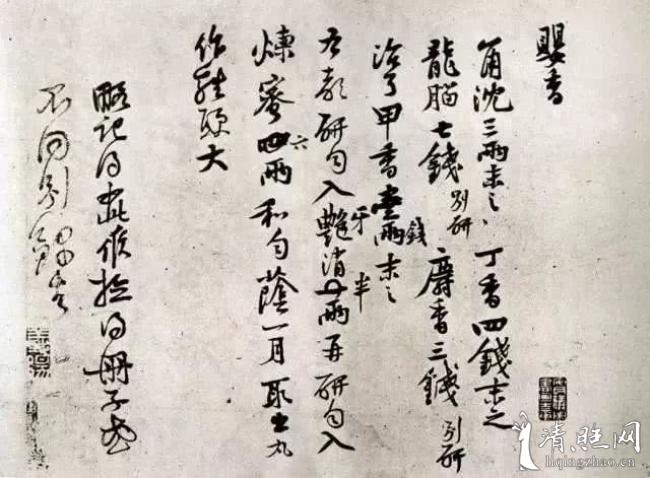 嬰香
角沈三兩末之 丁香四錢末之
龍腦七錢別研 麝香三錢別研
治了甲香壹兩錢末之
右都研勻入艷牙消半兩再研勻入
煉蜜四六兩和勻蔭一月取出丸
作雞頭大
略記得此候檢得冊子或
不同別錄去
liqingzhao.cn